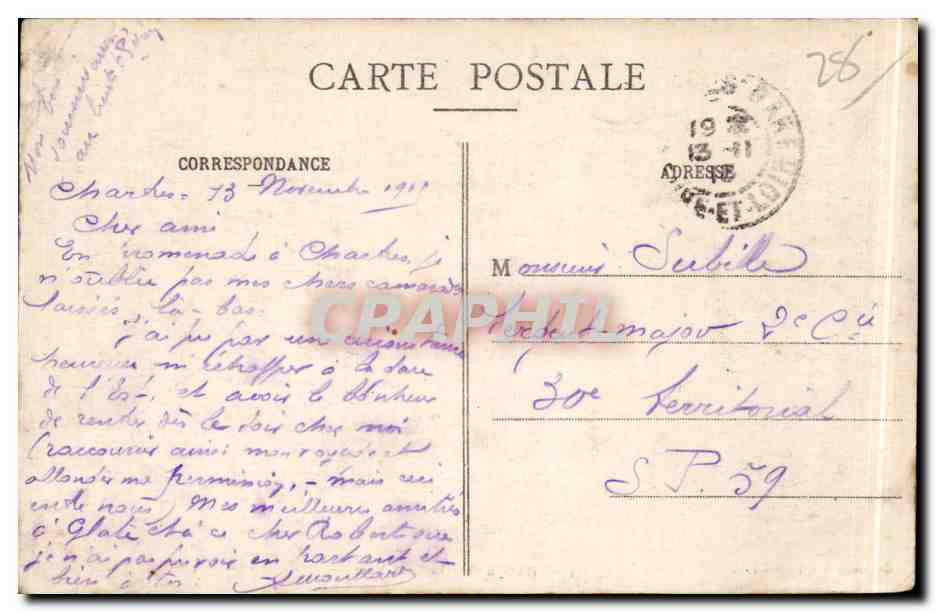 28
CARTE POSTALE
CORRESPONDANCE
ADRESSE
19
13 11
ET-LOIR
Mon bon
au
Chartres 13 Novembre 191
Cher ami
En promenade à Chartres, je
n'oublie pas mes chers camarades
laissés là-bas.
j'ai pu par une circonstance
heureuse m'échapper à la Gare
de l'Est, et avoir le bonheur
de rentrer dès le soir chez moi
(raccourir ainsi mon voyage et
ma permission, - mais ceci
entre nous) Mes meilleures amitiés
à et à ce cher Robert que
je n'ai pas pu voir en partant et
bien à toi.
Monsieur Subille
Sergent-major 2e Cie
30e Territorial
S. P. 59
CARAPHIL